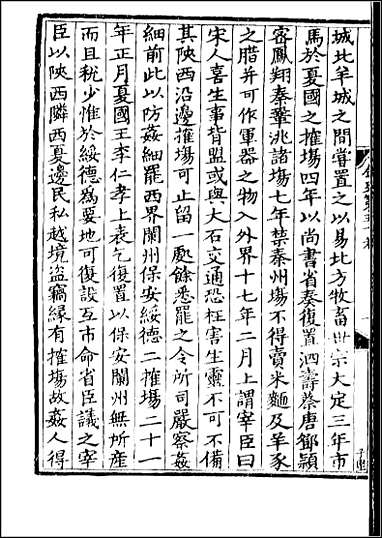 城北羊城之間嘗置之以易北方牧畜世宗大定三年市
馬於夏國之榷場四年以尚書省奏復置泗壽蔡唐鄧潁
密鳳翔秦鞏洮諸塲七年禁秦州塲不得賣米麵及羊豕
之腊并可作軍器之物入外界十七年二月上謂宰臣曰
宋人喜生事背盟或與大石交通恐枉害生靈不可不備
其陝西沿邊榷塲可止留一處餘悉罷之令所司嚴察姦
細前此以防姦細罷西界蘭州保安綏德二榷塲二十一
年正月夏國王李仁孝上表乞復置以保安蘭州無所產
而且稅少惟於綏德為要地可復設互市命省臣議之宰
臣以陝西隣西夏邊民私越境盜竊緣有榷塲故姦人得